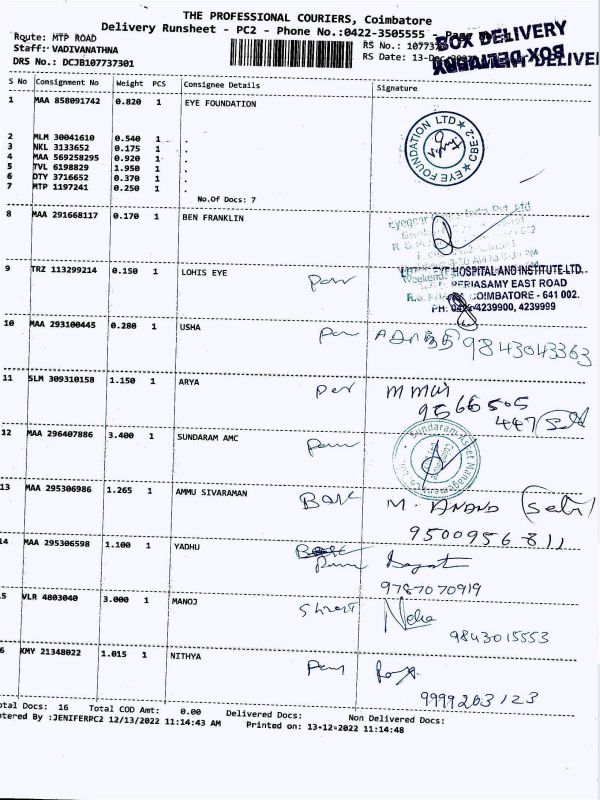 THE PROFESSIONAL COURIERS, Coimbatore
Delivery Runsheet - PC2 - Phone No.:0422-3505555
BOX DELIVERY
BOX DELIVERY
Route: MTP ROAD
Staff: VADIVANATHNA
RS No.: 107737
DRS No.: DCJB107737301
RS Date: 13-De
S No Consignment No Weight PCS Consignee Details Signature
1 MAA 858091742 0.820 1 EYE FOUNDATION
EYE FOUNDATION LTD ★ CBE-2 ★
2 MLM 30041610 0.540 1 .
3 NKL 3133652 0.175 1 .
4 MAA 569258295 0.920 1 .
5 TVL 6198829 1.950 1 .
6 DTY 3716652 0.370 1 .
7 MTP 1197241 0.250 1 .
No.Of Docs: 7
8 MAA 291668117 0.170 1 BEN FRANKLIN
Pvt. Ltd
9 TRZ 113299214 0.150 1 LOHIS EYE
EYE HOSPITAL AND INSTITUTE LTD.
PERIASAMY EAST ROAD
COIMBATORE - 641 002.
PH: 0422-4239900, 4239999
10 MAA 293100445 0.280 1 USHA
9843043363
11 SLM 309310158 1.150 1 ARYA
9566505
447
12 MAA 296407886 3.400 1 SUNDARAM AMC
Sundaram Asset Management Co
13 MAA 295306986 1.265 1 AMMU SIVARAMAN
M. ANAND
9500956811
14 MAA 295306598 1.100 1 YADHU
9787070919
5 VLR 4803040 3.000 1 MANOJ
Neha
9843015553
6 KMY 21348022 1.015 1 NITHYA
9999203123
otal Docs: 16 Total COD Amt: 0.00 Delivered Docs: Non Delivered Docs:
ntered By :JENIFERPC2 12/13/2022 11:14:43 AM Printed on: 13-12-2022 11:14:48